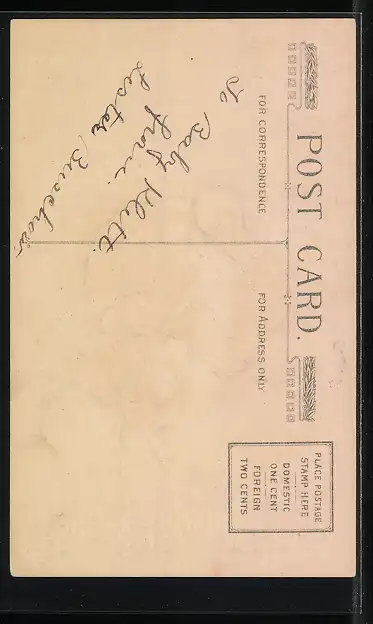 POST CARD.
FOR CORRESPONDENCE
FOR ADDRESS ONLY
PLACE POSTAGE
STAMP HERE
DOMESTIC
ONE CENT
FOREIGN
TWO CENTS
To
Baby Klett.
From
Lester